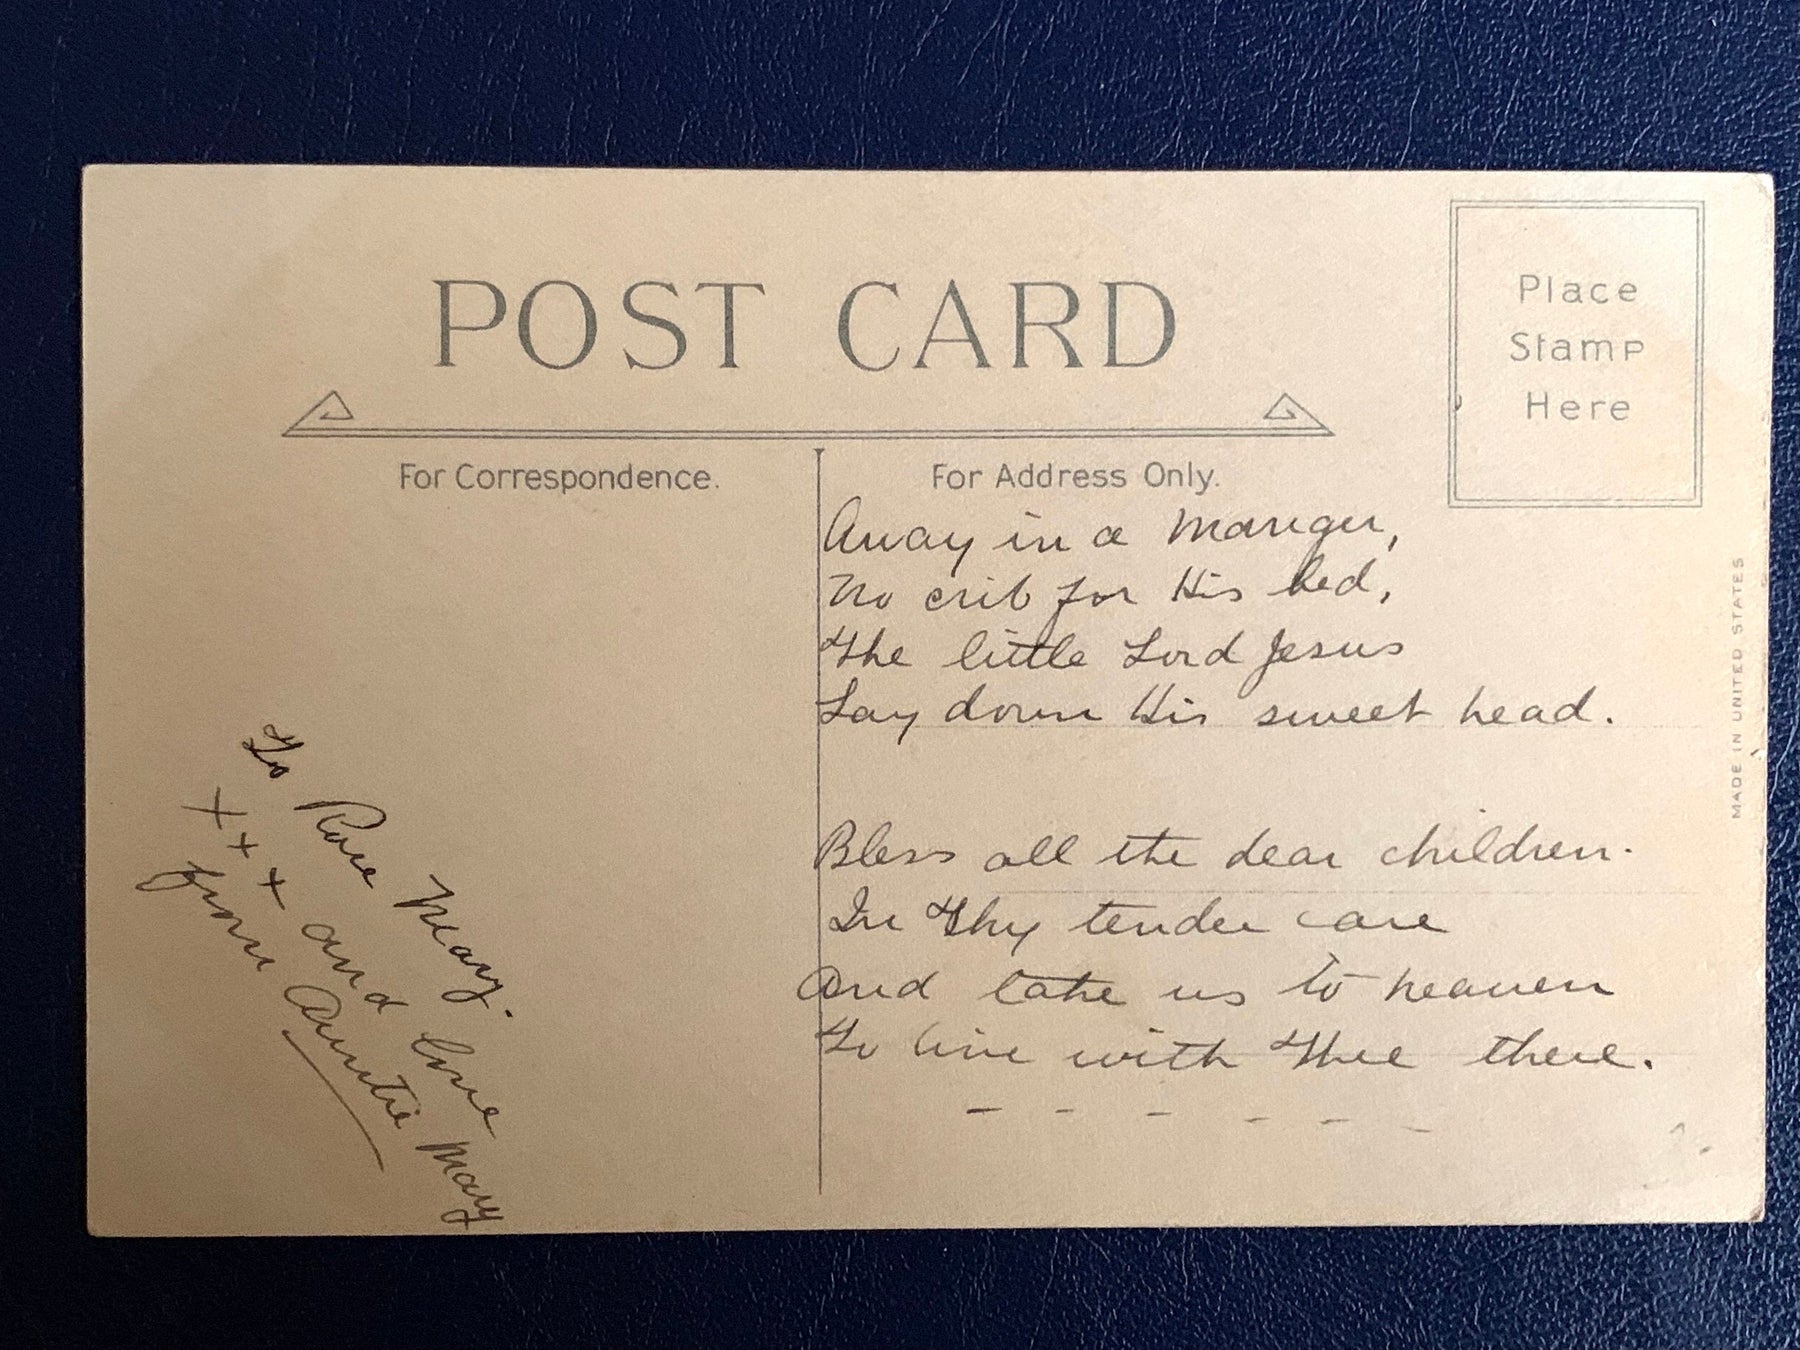 POST CARD
Place
Stamp
Here
For Correspondence.
For Address Only.
To Rose Mary.
x x x and love
from Auntie Mary
Away in a Manger,
No crib for His bed,
The little Lord Jesus
Lay down His sweet head.
Bless all the dear children.
In Thy tender care
And take us to heaven
To live with Thee there.
MADE IN UNITED STATES